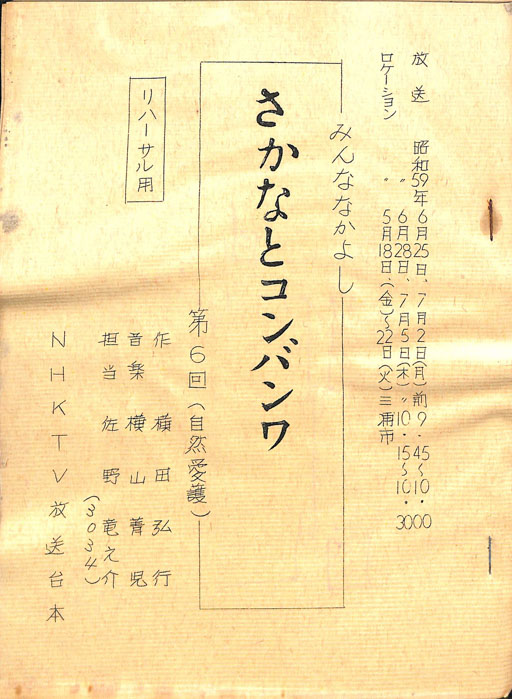 放送 昭和59年6月25日、7月2日(月)前9・45〜10・00
〃 6月28日、7月5日(木)〃10・15〜10・30
ロケーション 5月18日、(金)〜22日(火)三浦市
みんななかよし
さかなとコンバンワ
第6回(自然愛護)
リハーサル用
作 横田弘行
音楽 横山菁児
担当 佐野竜之介
(3034)
NHKTV放送台本